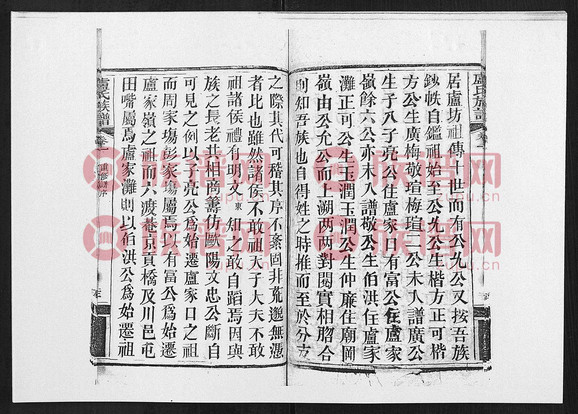 盧氏族譜
卷一
居盧坊祖傳一世而有公九公又按吾族
鈌帙自鑑祖始至公九公生楷方正可楷
方公生廣梅敬瑄梅瑄二公未入譜廣公
生子八子亮公住盧家口有富公住盧家
嶺餘六公亦未入譜敬公生伯洪住盧家
灘正可公生玉潤玉潤公生仲廉住廟岡
嶺由公九公而上溯兩兩對閱實相脗合
則知吾族也自得姓之時推而至於分支
之際其代可稽其序不紊固非荒邈無憑
者比也雖然諸侯不敢祖天子大夫不敢
祖諸侯禮有明文東知之敢自蹈焉因與
族之長老共相商籌仿歐陽文忠公斷自
可見之例以子亮公為始遷盧家口之祖
而周家塲彭家塲屬焉以有富公為始遷
盧家嶺之祖而六渡巷京貢橋及川邑屯
田嘴屬焉盧家灘則以伯洪公為始遷祖
盧氏族譜
卷一
族譜网